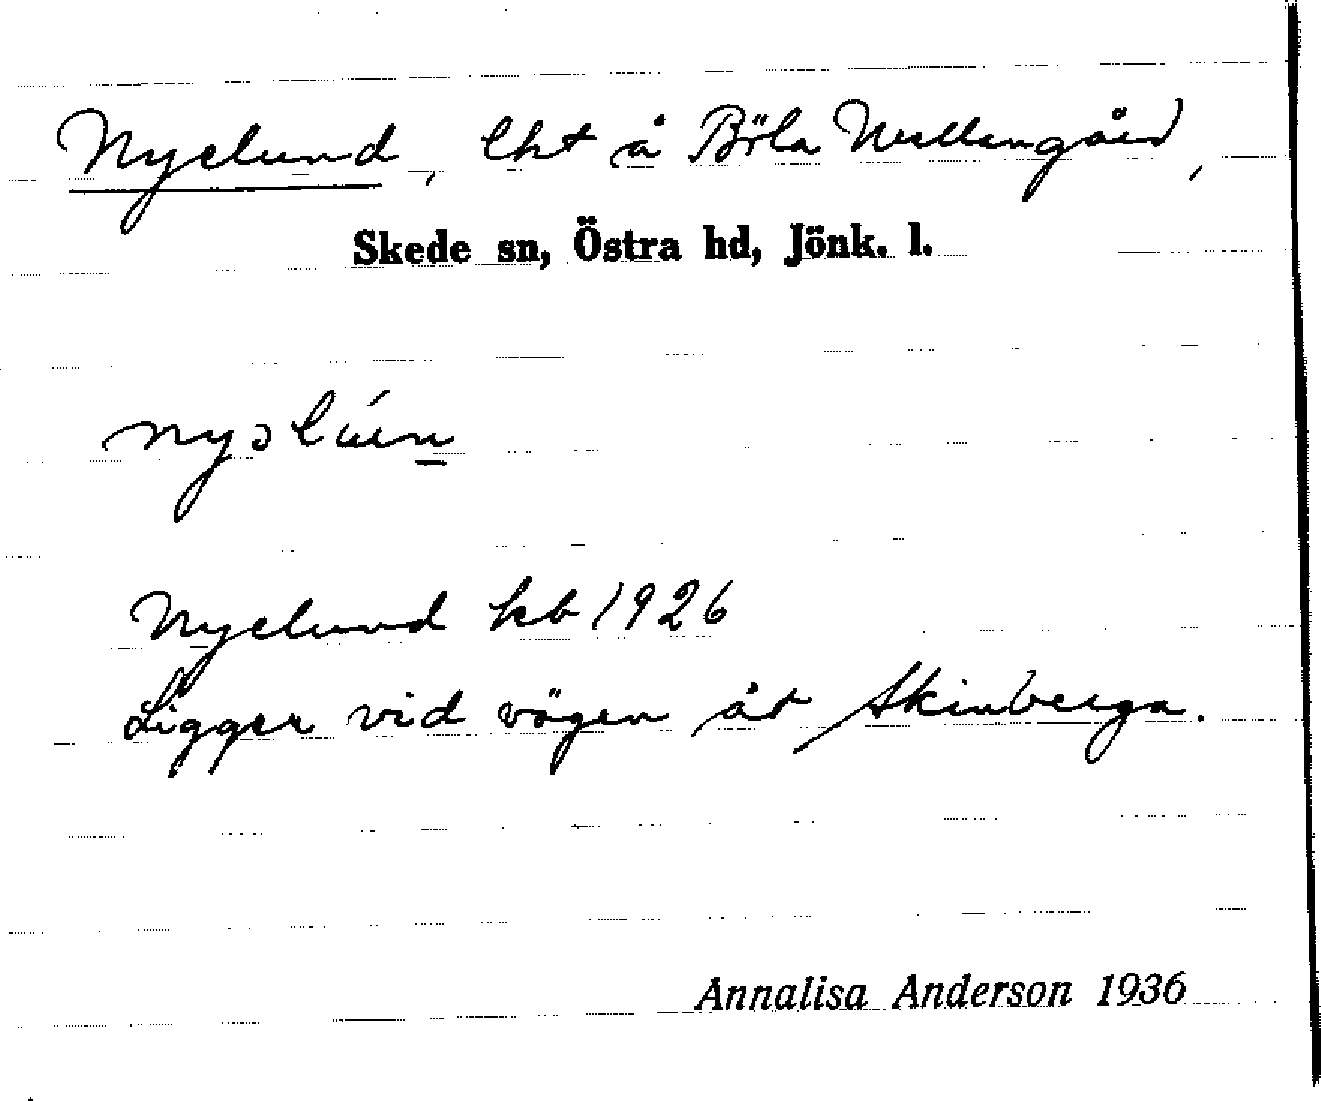 Nyelund, lht å Böla Mellangård,
Skede sn, Östra hd, Jönk. l.
Nyelund kb 1926
Ligger vid vägen åt Skinberga.
Annalisa Anderson 1936